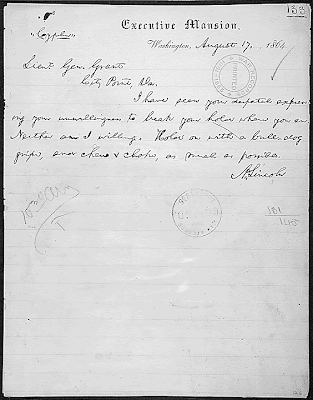 133
Cypher
Executive Mansion,
Washington, August 17, 1864.
Lieut. Gen. Grant
City Point, Va.
I have seen your despatch express-
ing your unwillingness to break your hold where you are.
Neither am I willing. Hold on with a bull-dog
gripe, and chew & choke, as much as possible.
A. Lincoln
181